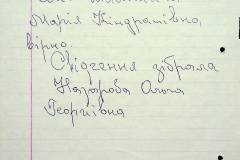 Марія Кіндратівна
вірно.
Свідчення зібрала
Назарова Ольга
Георгіївна